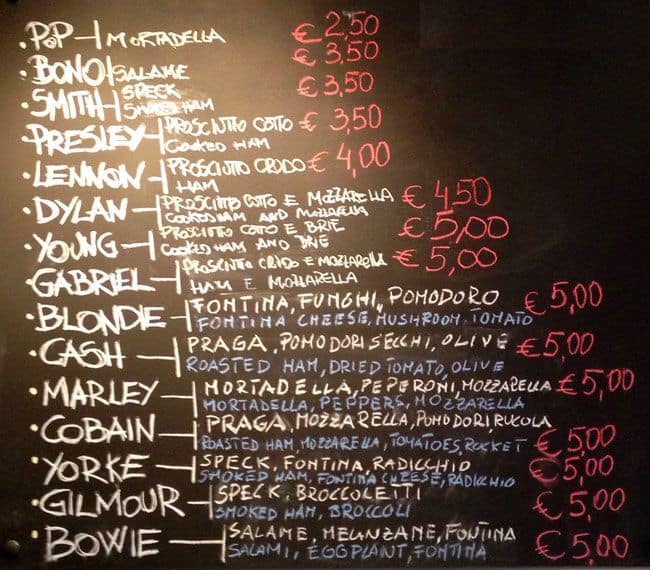 · POP - MORTADELLA € 2,50
· BONO - SALAME € 3,50
· SMITH - SPECK € 3,50
SMOKED HAM
· PRESLEY - PROSCIUTTO COTTO € 3,50
COOKED HAM
· LENNON - PROSCIUTTO CRUDO € 4,00
HAM
· DYLAN - PROSCIUTTO COTTO E MOZZARELLA € 4,50
COOKED HAM AND MOZZARELLA
· YOUNG - PROSCIUTTO COTTO E BRIE € 5,00
COOKED HAM AND BRIE
· GABRIEL - PROSCIUTTO CRUDO E MOZZARELLA € 5,00
HAM E MOZZARELLA
· BLONDIE - FONTINA, FUNGHI, POMODORO € 5,00
FONTINA CHEESE, MUSHROOM, TOMATO
· CASH - PRAGA, POMODORI SECCHI, OLIVE € 5,00
ROASTED HAM, DRIED TOMATO, OLIVE
· MARLEY - MORTADELLA, PEPERONI, MOZZARELLA € 5,00
MORTADELLA, PEPPERS, MOZZARELLA
· COBAIN - PRAGA, MOZZARELLA, POMODORI RUCOLA
ROASTED HAM, MOZZARELLA, TOMATOES, ROCKET € 5,00
· YORKE - SPECK, FONTINA, RADICCHIO € 5,00
SMOKED HAM, FONTINA CHEESE, RADICCHIO
· GILMOUR - SPECK, BROCCOLETTI € 5,00
SMOKED HAM, BROCCOLI
· BOWIE - SALAME, MELANZANE, FONTINA € 5,00
SALAMI, EGGPLANT, FONTINA